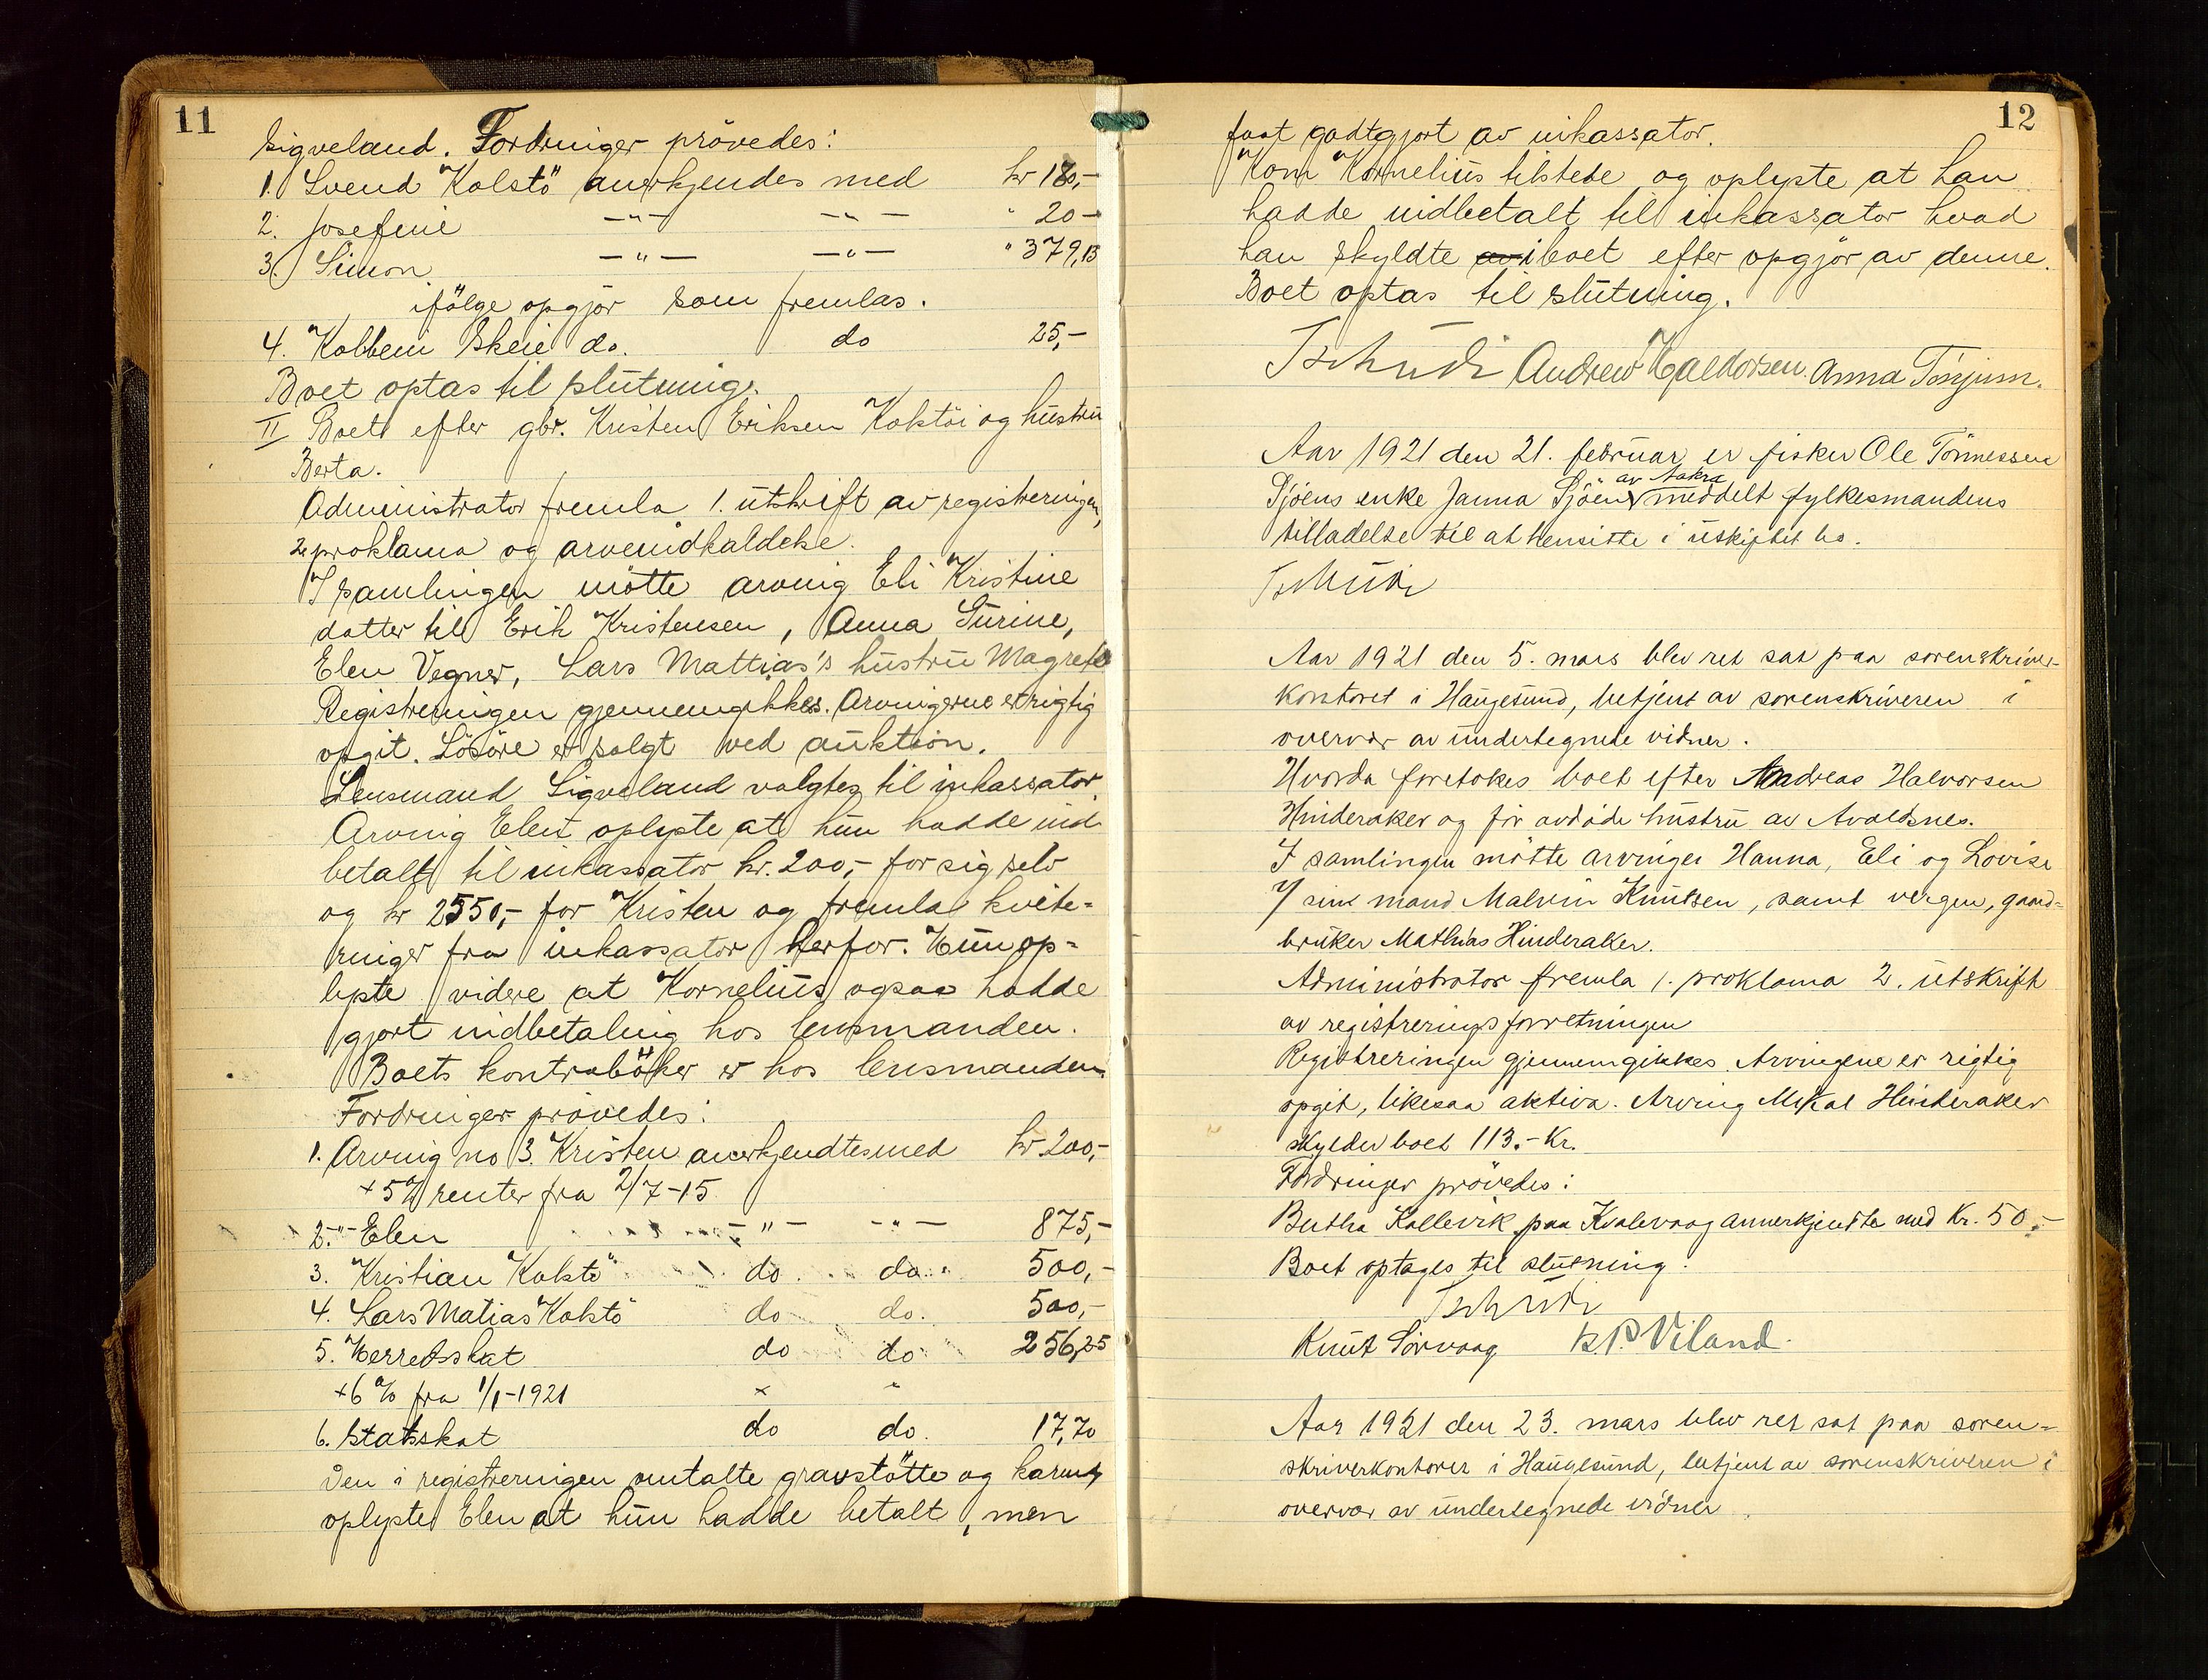 11
Sigveland. Fordringer prövedes:
1. Svend Kolstö anerkjendes med kr 180,-
2. Josefine -"- -"- " 20-
3. Simon -"- -"- " 379,13
ifölge opgjör som fremlas.
4. Kolbein Skeie do. do 25,-
Boet optas til slutning.
II Boet efter gbr. Kristen Eriksen Kolstöi og hustru
Berta.
Administrator fremla 1. utskrift av registreringen,
2. proklama og arveindkaldelse.
I samlingen mötte arving Eli Kristine
datter til Erik Kristensen, Anna Surine,
Elen Vegner, Lars Mattias's hustru Magrete
Registreringen gjennemgikkes. Arvingerne er rigtig
opgit. Lösöre er solgt ved auktion.
Lensmand Sigveland valgtes til inkassator.
Arving Elen oplyste at hun hadde ind
betalt til inkassator kr. 200,- for sig selv
og kr 2550,- for Kristen og fremla kvite-
ringer fra inkassator herfor. Hun op-
lyste videre at Kornelius ogsaa hadde
gjort indbetaling hos lensmanden.
Boets kontraböker er hos lensmanden.
Fordringer prövedes:
1. Arving no 3. Kristen anerkjendtes med kr 200,-
+ 5% renter fra 2/7-15
2. -"- Elen -"- -"- 875,-
3. Kristian Kolstö do. do. 500,-
4. Lars Matias Kolstö do do. 500,-
5. Herredsskat do do 256,25
+6% fra 1/1-1921
6. Statsskat do do. 17,70
Den i registreringen omtalte gravstötte og karm
oplyste Elen at hun hadde betalt, men
12
faat godtgjort av inkassator.
Kom Kornelius tilstede og oplyste at han
hadde indbetalt til inkassator hvad
han skyldte av i boet efter opgjör av denne.
Boet optas til slutning.
Tschudi Andrew Haldorsen. Anna Tönjum.
Aar 1921 den 21. februar er fisker Ole Tönnessen
av Aakra
Sjöens enke Janna Sjöen meddelt fylkesmandens
tilladelse til at hensitte i uskiftet bo.
Tschudi
Aar 1921 den 5. mars blev ret sat paa sorenskriver-
kontoret i Haugesund, betjent av sorenskriveren i
overvær av undertegnede vidner.
Hvorda foretokes boet efter Andreas Halvorsen
Hinderaker og för avdöde hustru av Avaldsnes.
I samlingen mötte arvinger Hanna, Eli og Lovise
v/ sin mand Malvin Knutsen, samt vergen, gaard-
bruker Mathias Hinderaker.
Administrator fremla 1. proklama 2. utskrift
av registreringsforretningen
Registreringen gjennemgikkes. Arvingene er rigtig
opgit, likesaa aktiva. Arving Mikal Hinderaker
skylder boet 113.- Kr.
Fordringer prövedes:
Bertha Kallevik paa Kvalevaag annerkjendtes med Kr. 50.-
Boet optages til slutning.
Tschudi
Knut Sörvaag K.P. Viland.
Aar 1921 den 23. mars blev ret sat paa soren-
skriverkontoret i Haugesund, betjent av sorenskriveren i
overvær av undertegnede vidner